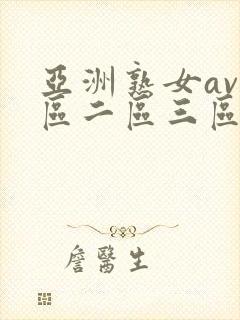 亞洲熟女av
區二區三區
詹醫生